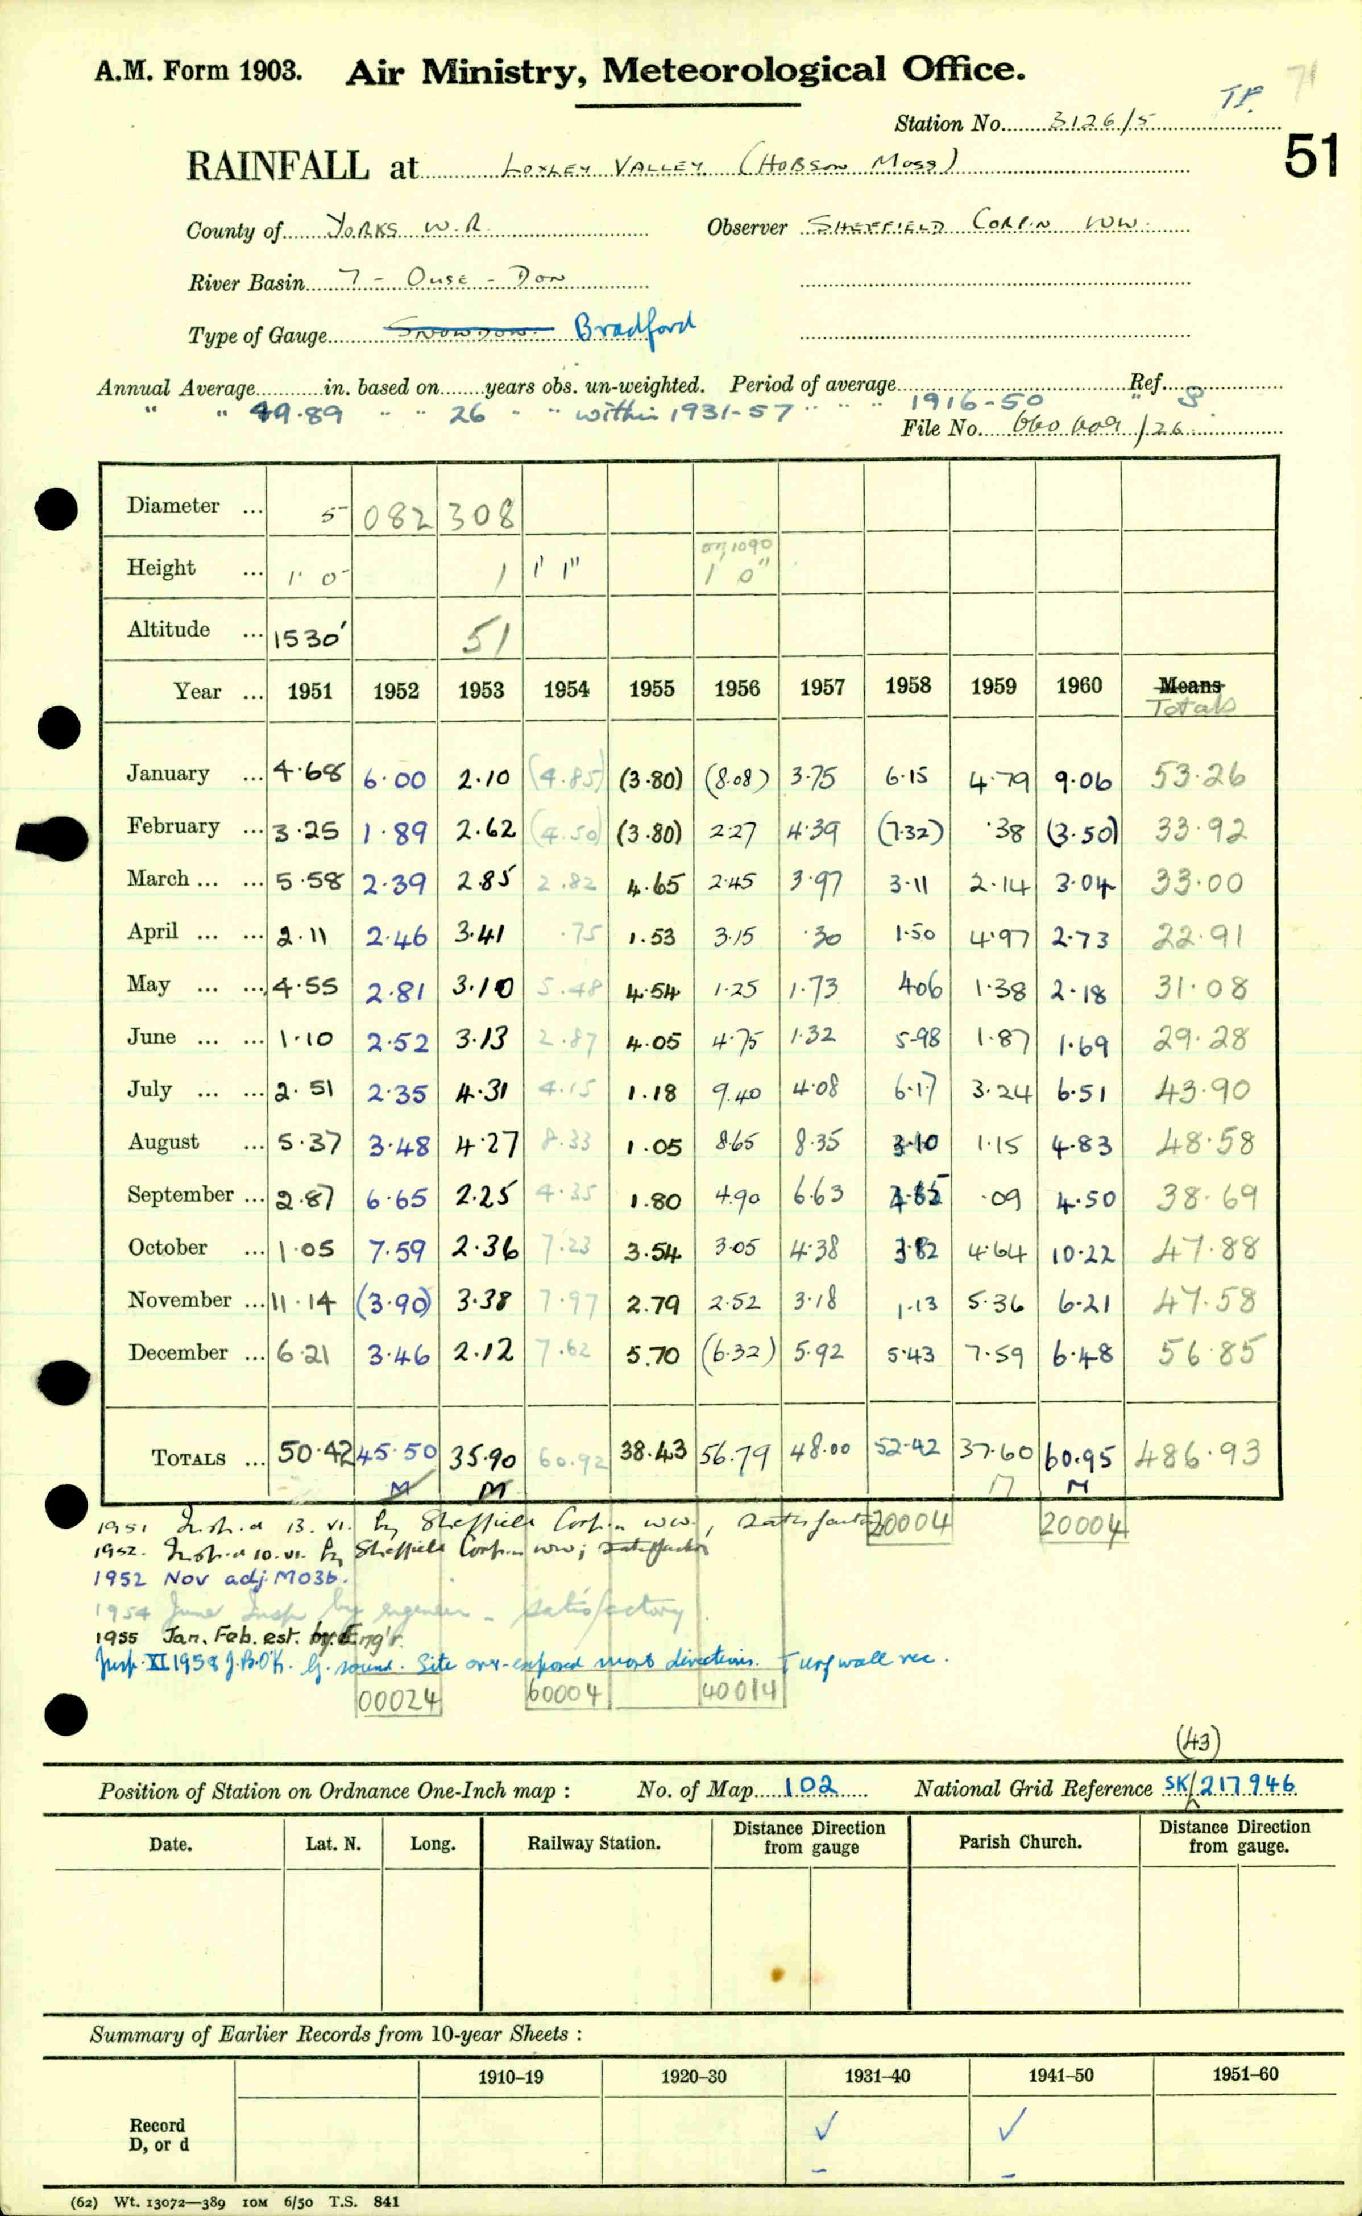 A.M. Form 1903. Air Ministry, Meteorological Office.
71
T.P.
Station No. 3126/5
51
RAINFALL at LOXLEY VALLEY (HOBSON MOSS)
County of YORKS W.R. Observer SHEFFIELD CORP'N WW.
River Basin 7 - OUSE - DON
Type of Gauge SNOWDON Bradford
Annual Average in. based on years obs. un-weighted. Period of average Ref.
" " 49.89 " " 26 " " within 1931-57 " " " 1916-50 " 8
File No. /26
Diameter ... 5 082 308
Height ... 1' 0 1 1' 1" 1' 0"
Altitude ... 1530' 51
Year ... 1951 1952 1953 1954 1955 1956 1957 1958 1959 1960 Means
Totals
January ... 4.68 6.00 2.10 (4.85) (3.80) (8.08) 3.75 6.15 4.79 9.06 53.26
February ... 3.25 1.89 2.62 (4.50) (3.80) 2.27 4.39 (7.32) .38 (3.50) 33.92
March ... ... 5.58 2.39 2.85 2.82 4.65 2.45 3.97 3.11 2.14 3.04 33.00
April ... ... 2.11 2.46 3.41 .75 1.53 3.15 .30 1.50 4.97 2.73 22.91
May ... ... 4.55 2.81 3.10 5.48 4.54 1.25 1.73 4.06 1.38 2.18 31.08
June ... ... 1.10 2.52 3.13 2.87 4.05 4.75 1.32 5.98 1.87 1.69 29.28
July ... ... 2.51 2.35 4.31 4.15 1.18 9.40 4.08 6.17 3.24 6.51 43.90
August ... 5.37 3.48 4.27 8.33 1.05 8.65 8.35 3.10 1.15 4.83 48.58
September ... 2.87 6.65 2.25 4.35 1.80 4.90 6.63 .09 4.50 38.69
October ... 1.05 7.59 2.36 7.23 3.54 3.05 4.38 3.82 4.64 10.22 47.88
November ... 11.14 (3.90) 3.38 7.97 2.79 2.52 3.18 1.13 5.36 6.21 47.58
December ... 6.21 3.46 2.12 7.62 5.70 (6.32) 5.92 5.43 7.59 6.48 56.85
TOTALS ... 50.42 45.50 35.90 60.92 38.43 56.79 48.00 52.42 37.60 60.95 486.93
M M M
1951 Insp.d 13.VI. by Sheffield Corp.n WW., satisfactory 20004 20004
1952. Insp.d 10.VI. by Sheffield Corp.n WW; satisfactory
1952 Nov adj. MO3b.
1954 June Insp by engineer - satisfactory.
1955 Jan. Feb. est. by Eng'r.
Insp. XI 1958 J.B.O'K. G. sound. Site over-exposed most directions. Turf wall rec.
00024 60004 40014
(43)
Position of Station on Ordnance One-Inch map : No. of Map 102 National Grid Reference SK/217946
Date. Lat. N. Long. Railway Station. Distance Direction from gauge Parish Church. Distance Direction from gauge.
Summary of Earlier Records from 10-year Sheets :
1910-19 1920-30 1931-40 1941-50 1951-60
Record
D, or d ✓ ✓
(62) Wt. 13072—389 10M 6/50 T.S. 841